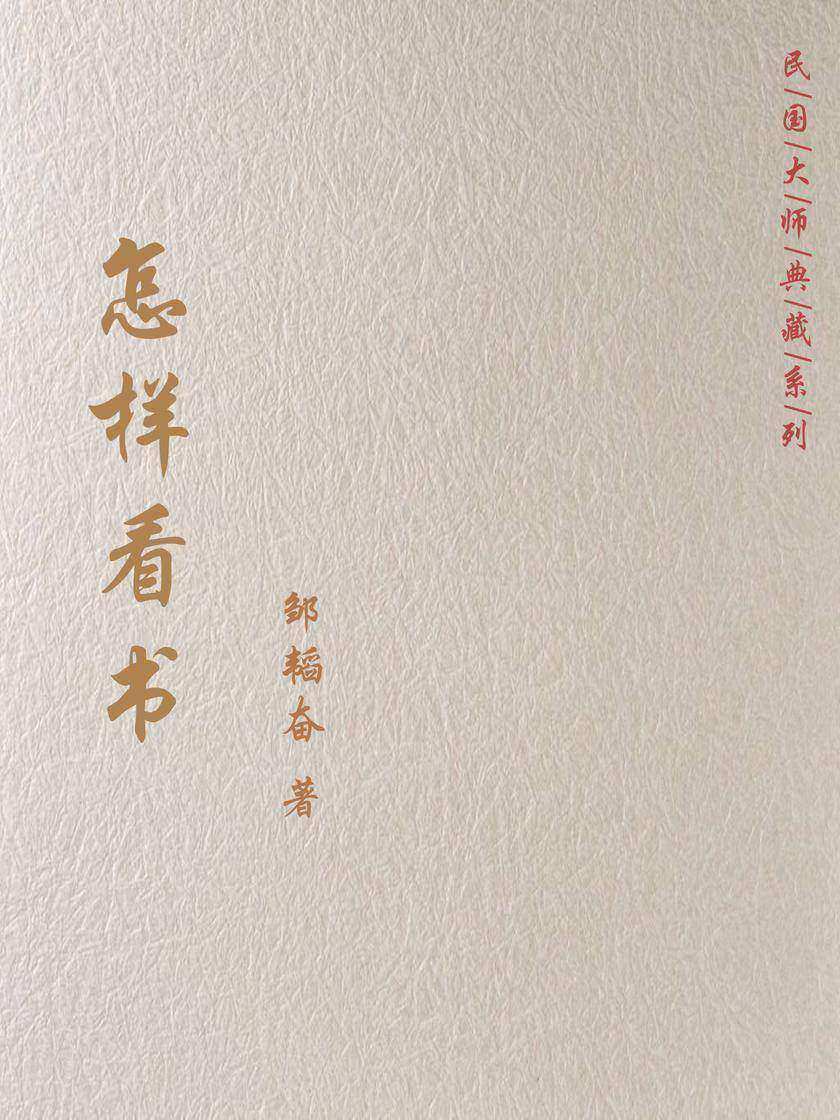 民|国|大|师|典|藏|系|列
怎样看书
邹韬奋 著